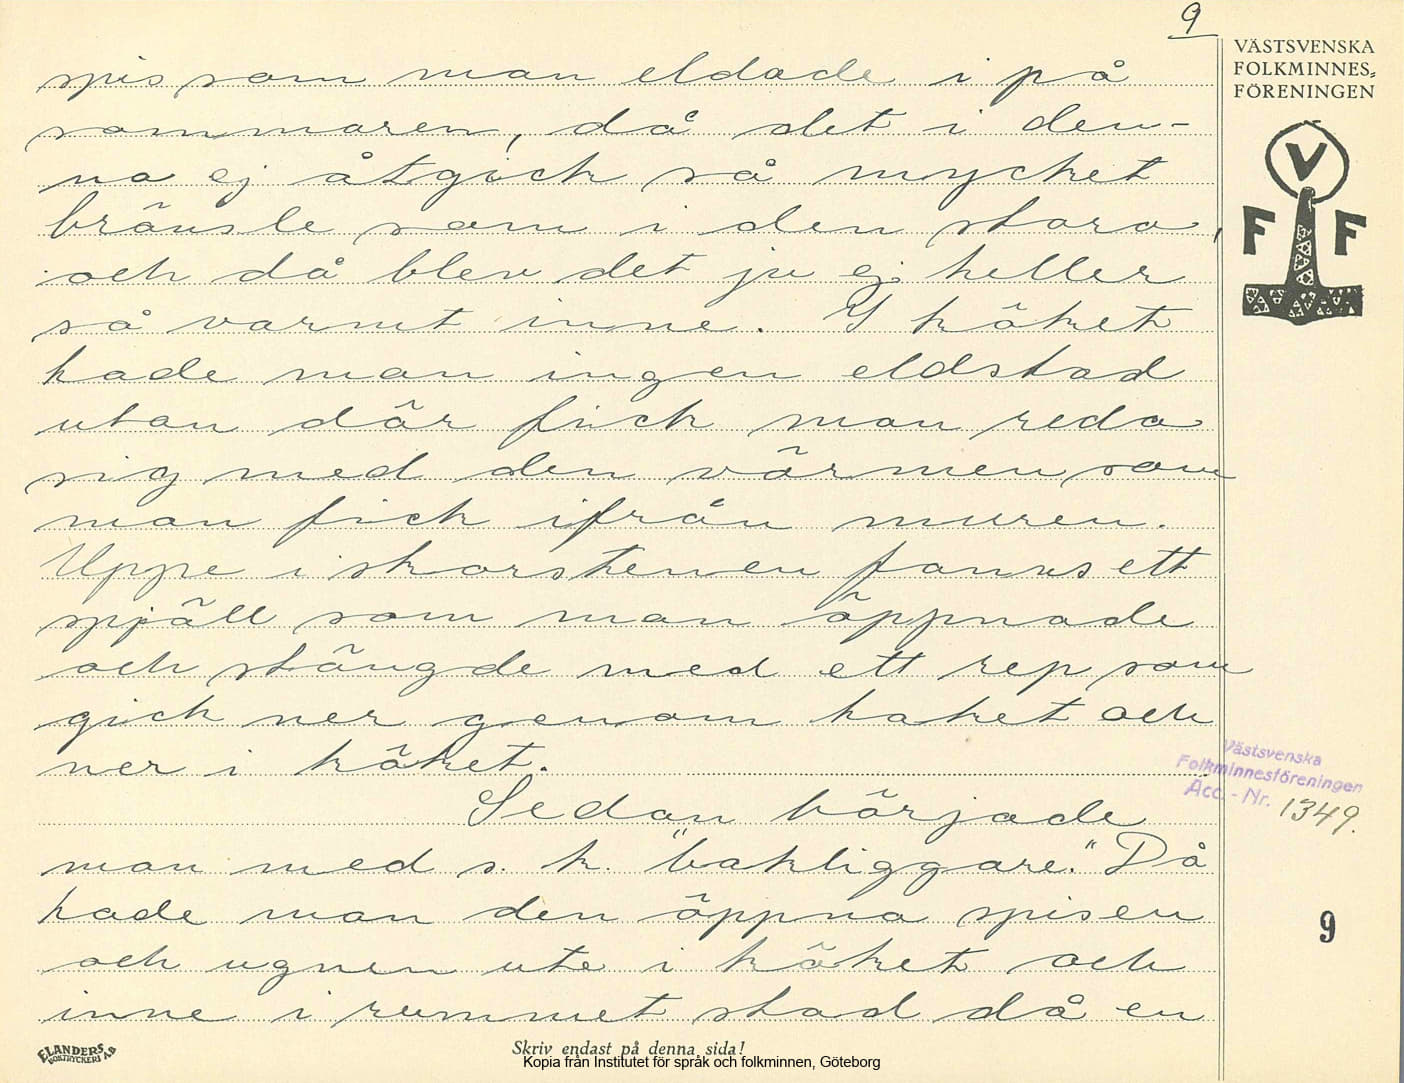 9
VÄSTSVENSKA
FOLKMINNES-
FÖRENINGEN
V
F F
spis som man eldade i på
sommaren, då det i den-
na ej åtgick så mycket
bränsle som i den stora,
och då blev det ju ej heller
så varmt inne. I köket
hade man ingen eldstad
utan där fick man reda
sig med den värmen som
man fick ifrån muren.
Uppe i skorstenen fanns ett
spjäll som man öppnade
och stängde med ett rep som
gick ner genom taket och
ner i köket.
Västsvenska
Folkminnesföreningen
Acc.-Nr. 1349.
Sedan började
man med s. k. "bakliggare." Då
hade man den öppna spisen
och ugnen ute i köket och
inne i rummet stod då en
9
ELANDERS
BOKTRYCKERI A.B
Skriv endast på denna sida!
Kopia från Institutet för språk och folkminnen, Göteborg